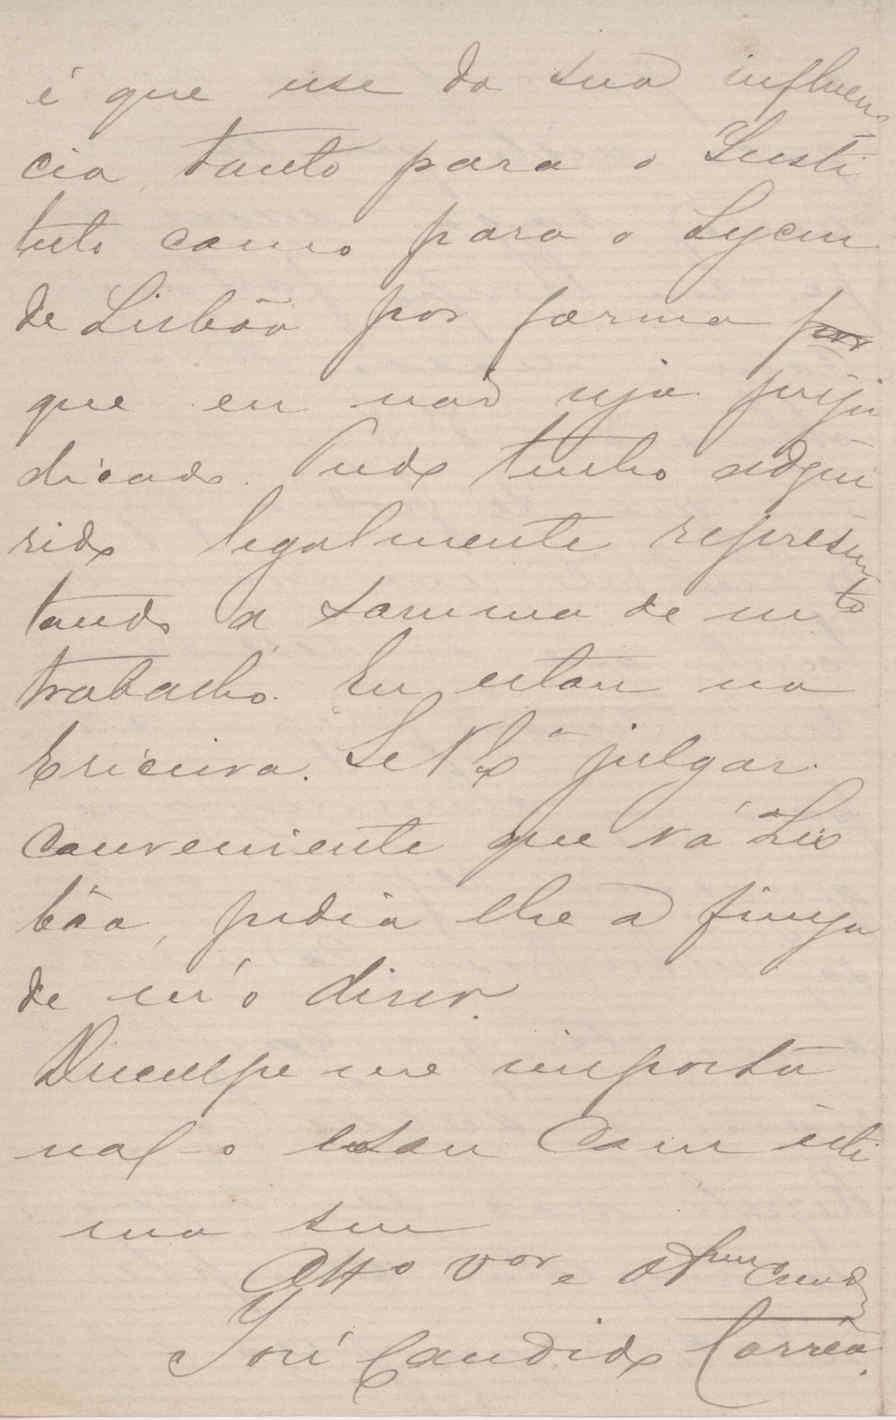 é que use da sua influen
cia, tanto para o Insti
tuto como para o Lyceu
de Lisbôa por forma por
que eu não seja preju
dicado. Tudo tenho adqui
rido legalmente represen
tando a somma de mto
trabalho. Eu estou na
Ericeira. Se V Exª julgar
conveniente que vá Lis
bôa, pedia lhe a fineza
de m'o dizer.
Desculpe me importu
nal o e sou com esti
ma seu
Atto vor e
José Candido Corrêa.